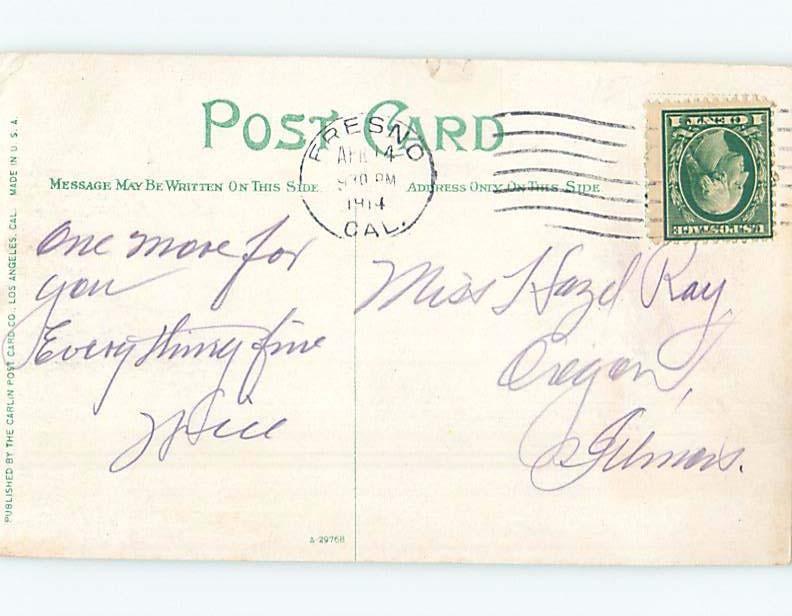 POST CARD
FRESNO
APR 14
9 30 PM
1914
CAL.
MESSAGE MAY BE WRITTEN ON THIS SIDE
ADDRESS ONLY ON THIS SIDE
1 CENT 1
U.S. POSTAGE
One more for
you
Everything fine
Miss Hazel Ray
Oregon,
Illinois.
PUBLISHED BY THE CARLIN POST CARD CO., LOS ANGELES, CAL. MADE IN U. S. A.
A-29768